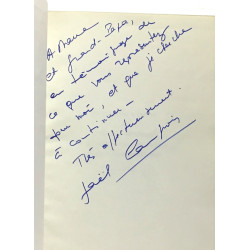 A Mamie
et Grand-Papa,
en témoignage de
ce que vous représentez
pour moi, et que je cherche
à continuer -
Très affectueusement.
Joël